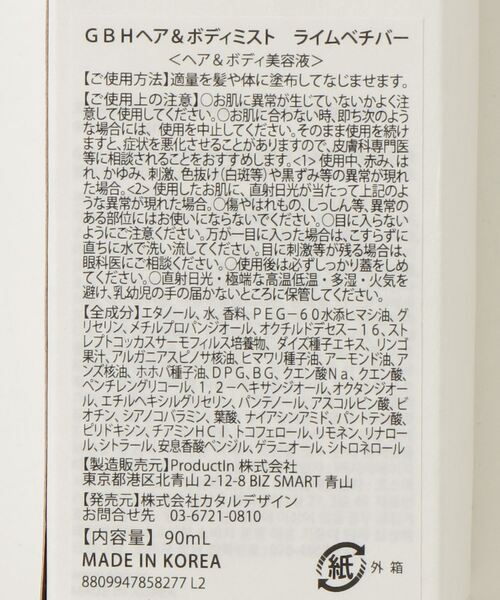 GBHヘア＆ボディミスト　ライムベチバー
＜ヘア＆ボディ美容液＞
【ご使用方法】適量を髪や体に塗布してなじませます。
【ご使用上の注意】○お肌に異常が生じていないかよく注
意して使用してください。○お肌に合わない時、即ち次のよう
な場合には、使用を中止してください。そのまま使用を続け
ますと、症状を悪化させることがありますので、皮膚科専門医
等に相談されることをおすすめします。<1> 使用中、赤み、は
れ、かゆみ、刺激、色抜け（白斑等）や黒ずみ等の異常が現れ
た場合。<2> 使用したお肌に、直射日光が当たって上記のよう
な異常が現れた場合。○傷やはれもの、しっしん等、異常の
ある部位にはお使いにならないでください。○目に入らない
ようにご注意ください。万が一目に入った場合は、こすらずに
直ちに水で洗い流してください。目に刺激等が残る場合は、
眼科医にご相談ください。○使用後は必ずしっかり蓋をしめ
てください。○直射日光・極端な高温低温・多湿・火気を
避け、乳幼児の手の届かないところに保管してください。
【全成分】エタノール、水、香料、PEG－60水添ヒマシ油、グ
リセリン、メチルプロパンジオール、オクチルドデセス－16、スト
レプトコッカスサーモフィルス培養物、ダイズ種子エキス、リンゴ
果汁、アルガニアスピノサ核油、ヒマワリ種子油、アーモンド油、ア
ンズ核油、ホホバ種子油、DPG、BG、クエン酸Na、クエン酸、
ペンチレングリコール、1，2－ヘキサンジオール、オクタンジオー
ル、エチルヘキシルグリセリン、パンテノール、アスコルビン酸、ビ
オチン、シアノコバラミン、葉酸、ナイアシンアミド、パントテン酸、
ピリドキシン、チアミンHCl、トコフェロール、リモネン、リナロー
ル、シトラール、安息香酸ベンジル、ゲラニオール、シトロネロール
【製造販売元】ProductIn 株式会社
東京都港区北青山 2-12-8 BIZ SMART 青山
【発売元】株式会社カタルデザイン
お問合せ先　03-6721-0810
【内容量】 90mL
MADE IN KOREA
8809947858277 L2
紙 外箱